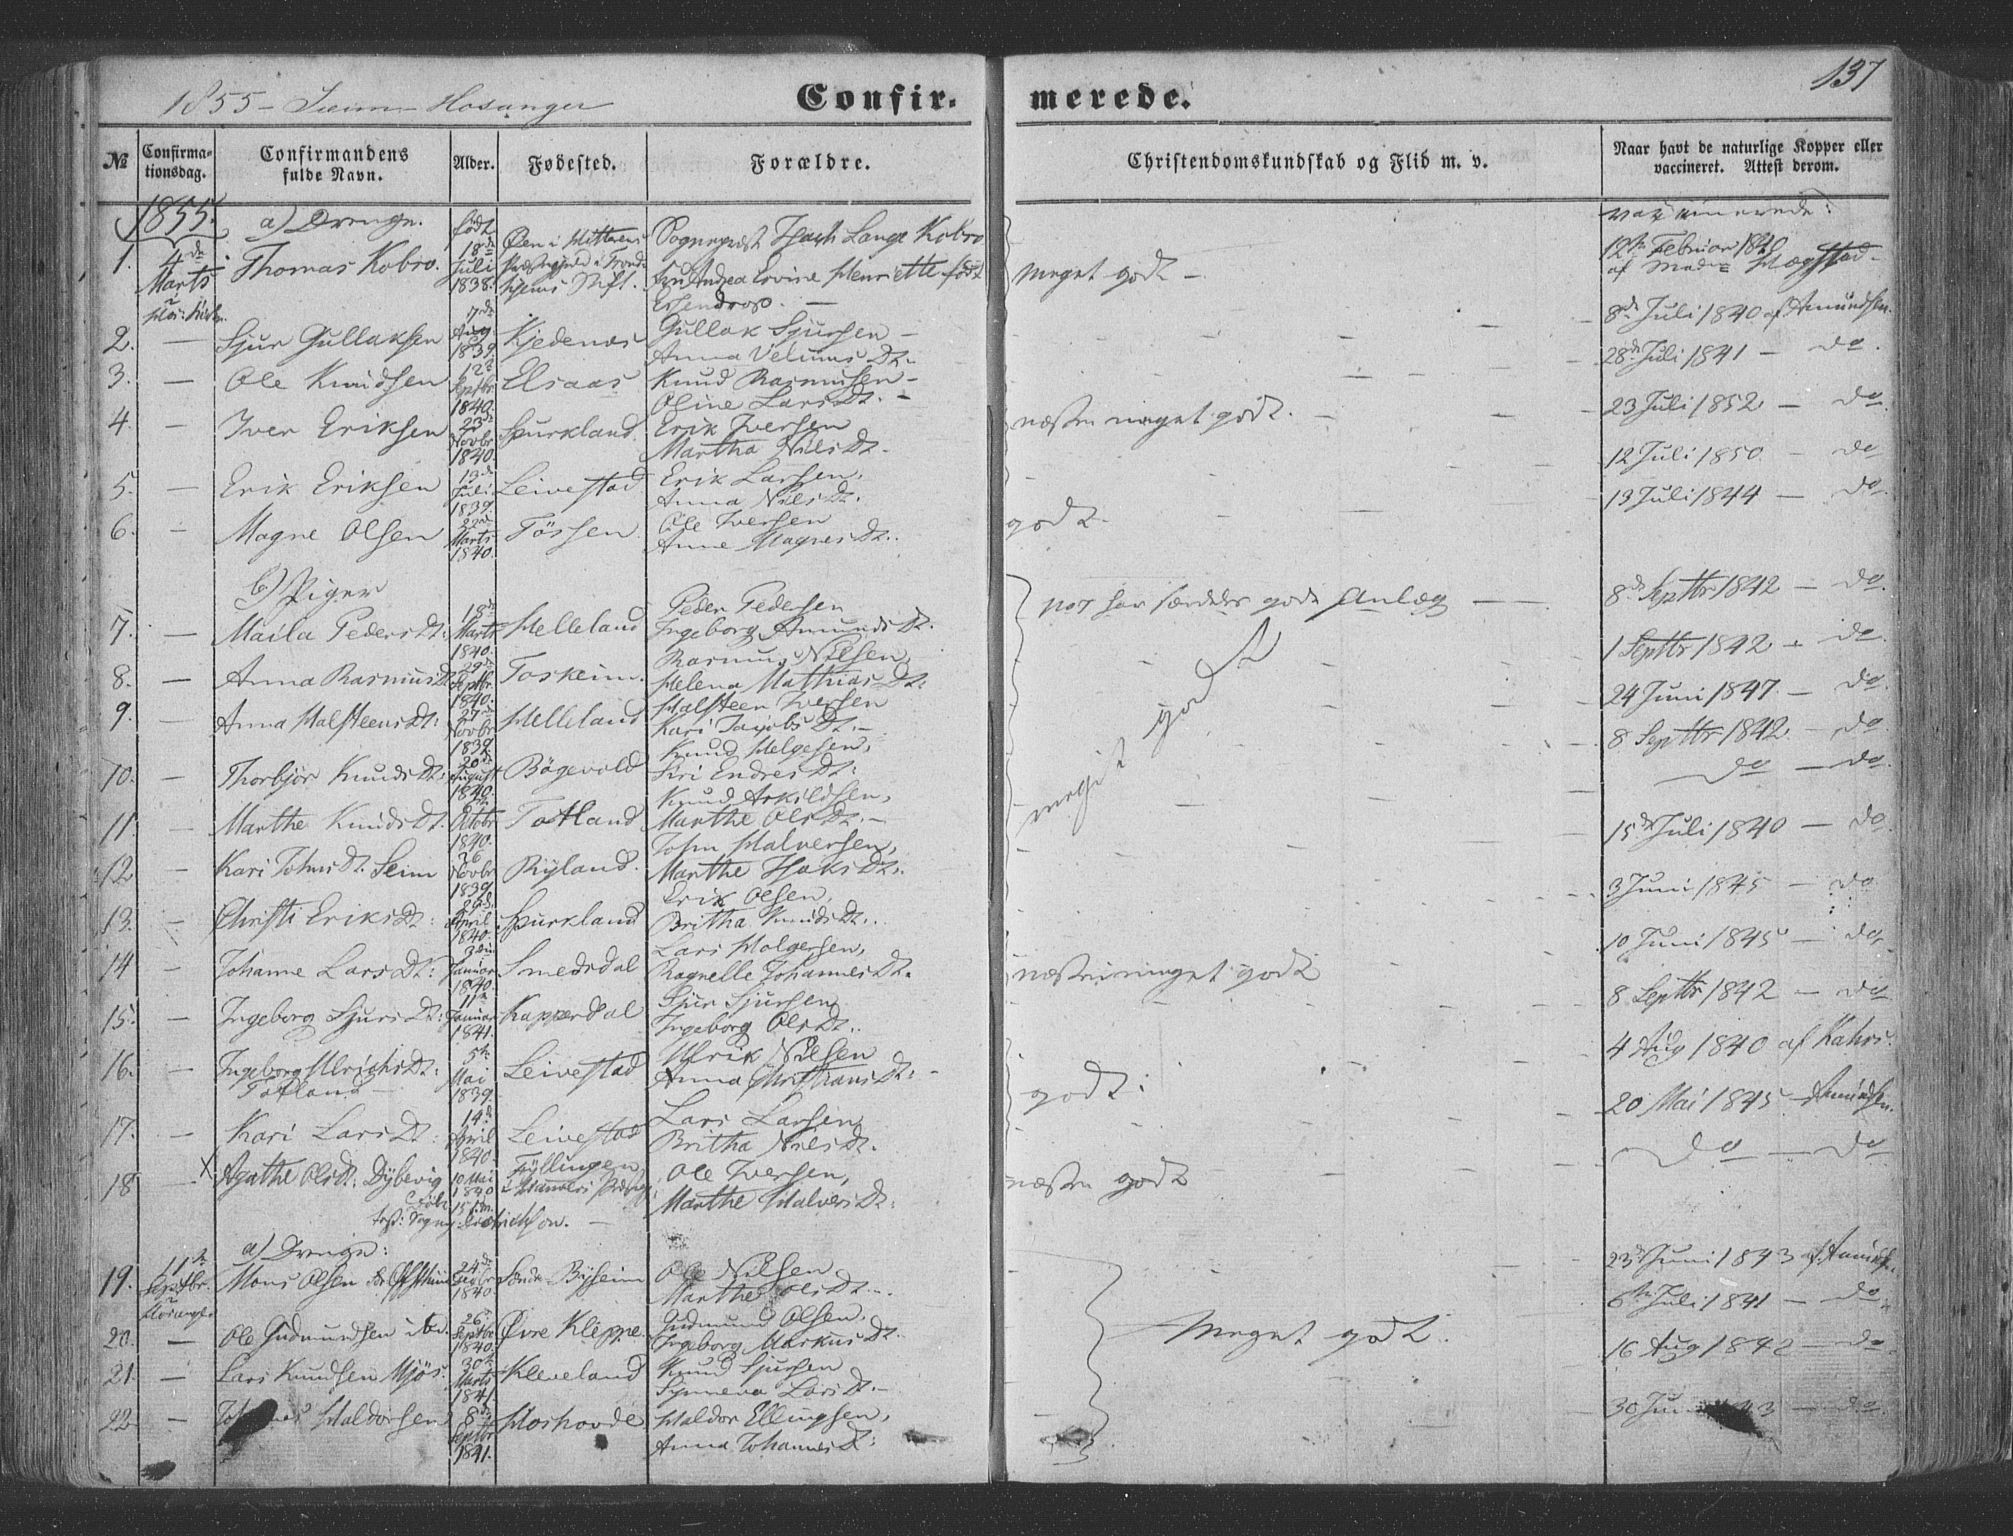 1855 - Seim - Hosanger
Confir- merede.
137
№
Confirma-
tionsdag.
Confirmandens
fulde Navn.
Alder.
Fødested.
Forældre.
Christendomskundskab og Flid m. v.
Naar havt de naturlige Kopper eller
vaccineret. Attest derom.
1855.
a) Drenge.
født
vaxinerede:
1. 4de Marts Thomas Kobro. 18de Juli 1838. Øen i Hitterens Sognepræst Lange Kobro
Henriette født
meget godt - 12te Februar 1840
af
2. - Sjur Gullaksen 7de Aug 1839. Kjedenæs Gullak Sjursen -
Anna Dt. -
8de Juli 1840 af Amundsen.
3. - Ole Knudsen 12te Septbr 1840. Elsaas Knud Rasmusen -
Oline Lars Dt. -
28de Juli 1841 - do.
4. - Iver Eriksen 23de Novbr 1840. Spurkland. Erik Iversen
Martha Niels Dt. -
næsten meget godt. 23 Juli 1852 - do.
5. - Erik Eriksen 13de Juli 1839. Leivestad Erik Larsen,
Anna Niels Dt.
12 Juli 1850. - do
6. - Magne Olsen 22de Marts 1840. Tössen. Ole Iversen
Anne Magnes Dt.
godt. 13 Juli 1844 - do.
b) Piger
7. - Maila Peders Dt: 18de Marts 1840. Helleland Peder Pedersen
Ingeborg Amunds Dt.
godt Anlæg 8de Septbr 1842 - do
8. - Anna Rasmus Dt 29de Septbr 1840. Toskeim. Rasmus Nilsen
Helena Mathias Dt:
1 Septbr 1842 - do.
9. - Anna Halsteens Dt: 27de Novbr 1839. Helleland Halsteen Iversen
Kari Jacobs Dt. -
24 Juni 1847. - do.
10. - Thorbjør Knuds Dt: 20de August 1840. Bögevold Knud Helgesen,
Siri Endres Dt:
8 Septbr 1842. - do.
meget godt
11. - Marthe Knuds Dt. Octobr 1840. Totland Knud Askildsen,
Marthe Ols Dt. -
do - do.
12 - Kari Johns Dt. Seim 26 Novbr 1839. Ryland. John Halversen,
Marthe Haks Dt..
15de Juli 1840 - do.
13. - Christi Eriks Dt: 26de April 1840. Spurkland Erik Olsen,
Britha Knuds Dt..
3 Juni 1845 - do
14 - Johanne Lars Dt: Januar 1840. Smedsdal Lars Holgersen,
Ragnelle Johannes Dt.
næsten meget godt 10 Juni 1845 - do.
15. - Ingeborg Sjurs Dt: 11te Januar 1841. Kapperdal Sjur Sjursen
Ingeborg Ols Dt..
8 Septbr 1842 - do
16. - Ingeborg Ulrichs Dt:
Totland - 5te Mai 1839. Leivestad Ulrik Nilsen
Anna Christians Dt: -
godt: 4 Aug 1840 af Kahrs.
17. - Kari Lars Dt: 14de April 1840. Leivestad Lars Larsen
Britha Niels Dt.
20 Mai 1845 - Amundsen.
18 - X Agathe Ols Dt: Dybevig 10 Mai 1840 Fyllingen
i Ole Iversen,
Marthe Halvers Dt:
næsten godt do - do
a) Drenge:
19. 11te Septbr. Hosanger Mons Olsen 24de 1840 Søndre Byseim Ole Nilsen
Marthe Ols Dt. -
23de Juni 1843 af
20. - Ole Gudmundsen 26 Septbr 1840. Øvre Kleppe. Gudmund Olsen,
Ingeborg Markus Dt.
Meget godt. 6te Juli 1841 - do
21. - Lars Knudsen Mjös. 30te Marts 1841. Kleveland Knud Sjursen
Synneva Lars Dt. -
16 Aug 1842 - do.
22 - Haldorsen 8de Septbr 1841. Hoshovde Haldor Ellingsen,
Anna Johannes Dt:
30 - do.